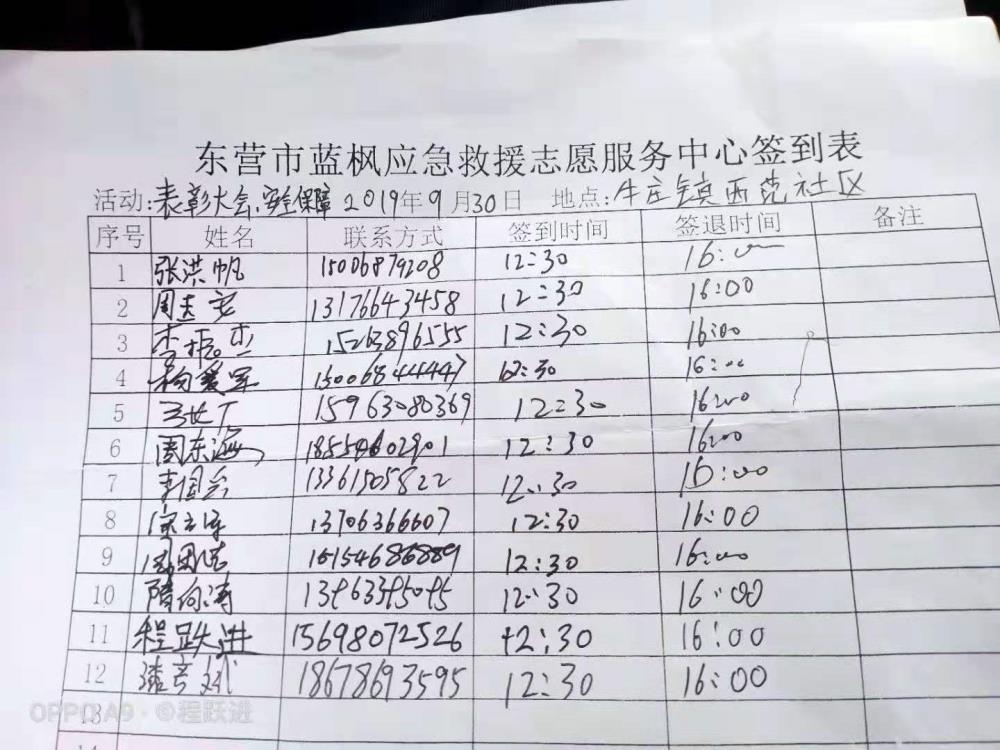 东营市蓝枫应急救援志愿服务中心签到表
活动:表彰大会.安全保障 2019年9月30日 地点:牛庄镇西范社区
序号 姓名 联系方式 签到时间 签退时间 备注
1 张洪帆 15006879208 12:30 16:00
2 周 安 13176643458 12:30 16:00
3 李振杰 15263896555 12:30 16:00
4 杨爱军 12:30 16:00
5 15963080369 12:30 16:00
6 周东海 18554602901 12:30 16:00
7 李国 13361505822 12:30 16:00
8 13706366607 12:30 16:00
9 12:30 16:00
10 隋向涛 12:30 16:00
11 程跃进 15698072526 12:30 16:00
12 18678693595 12:30 16:00
13
OPPO A9 · ©程跃进
14